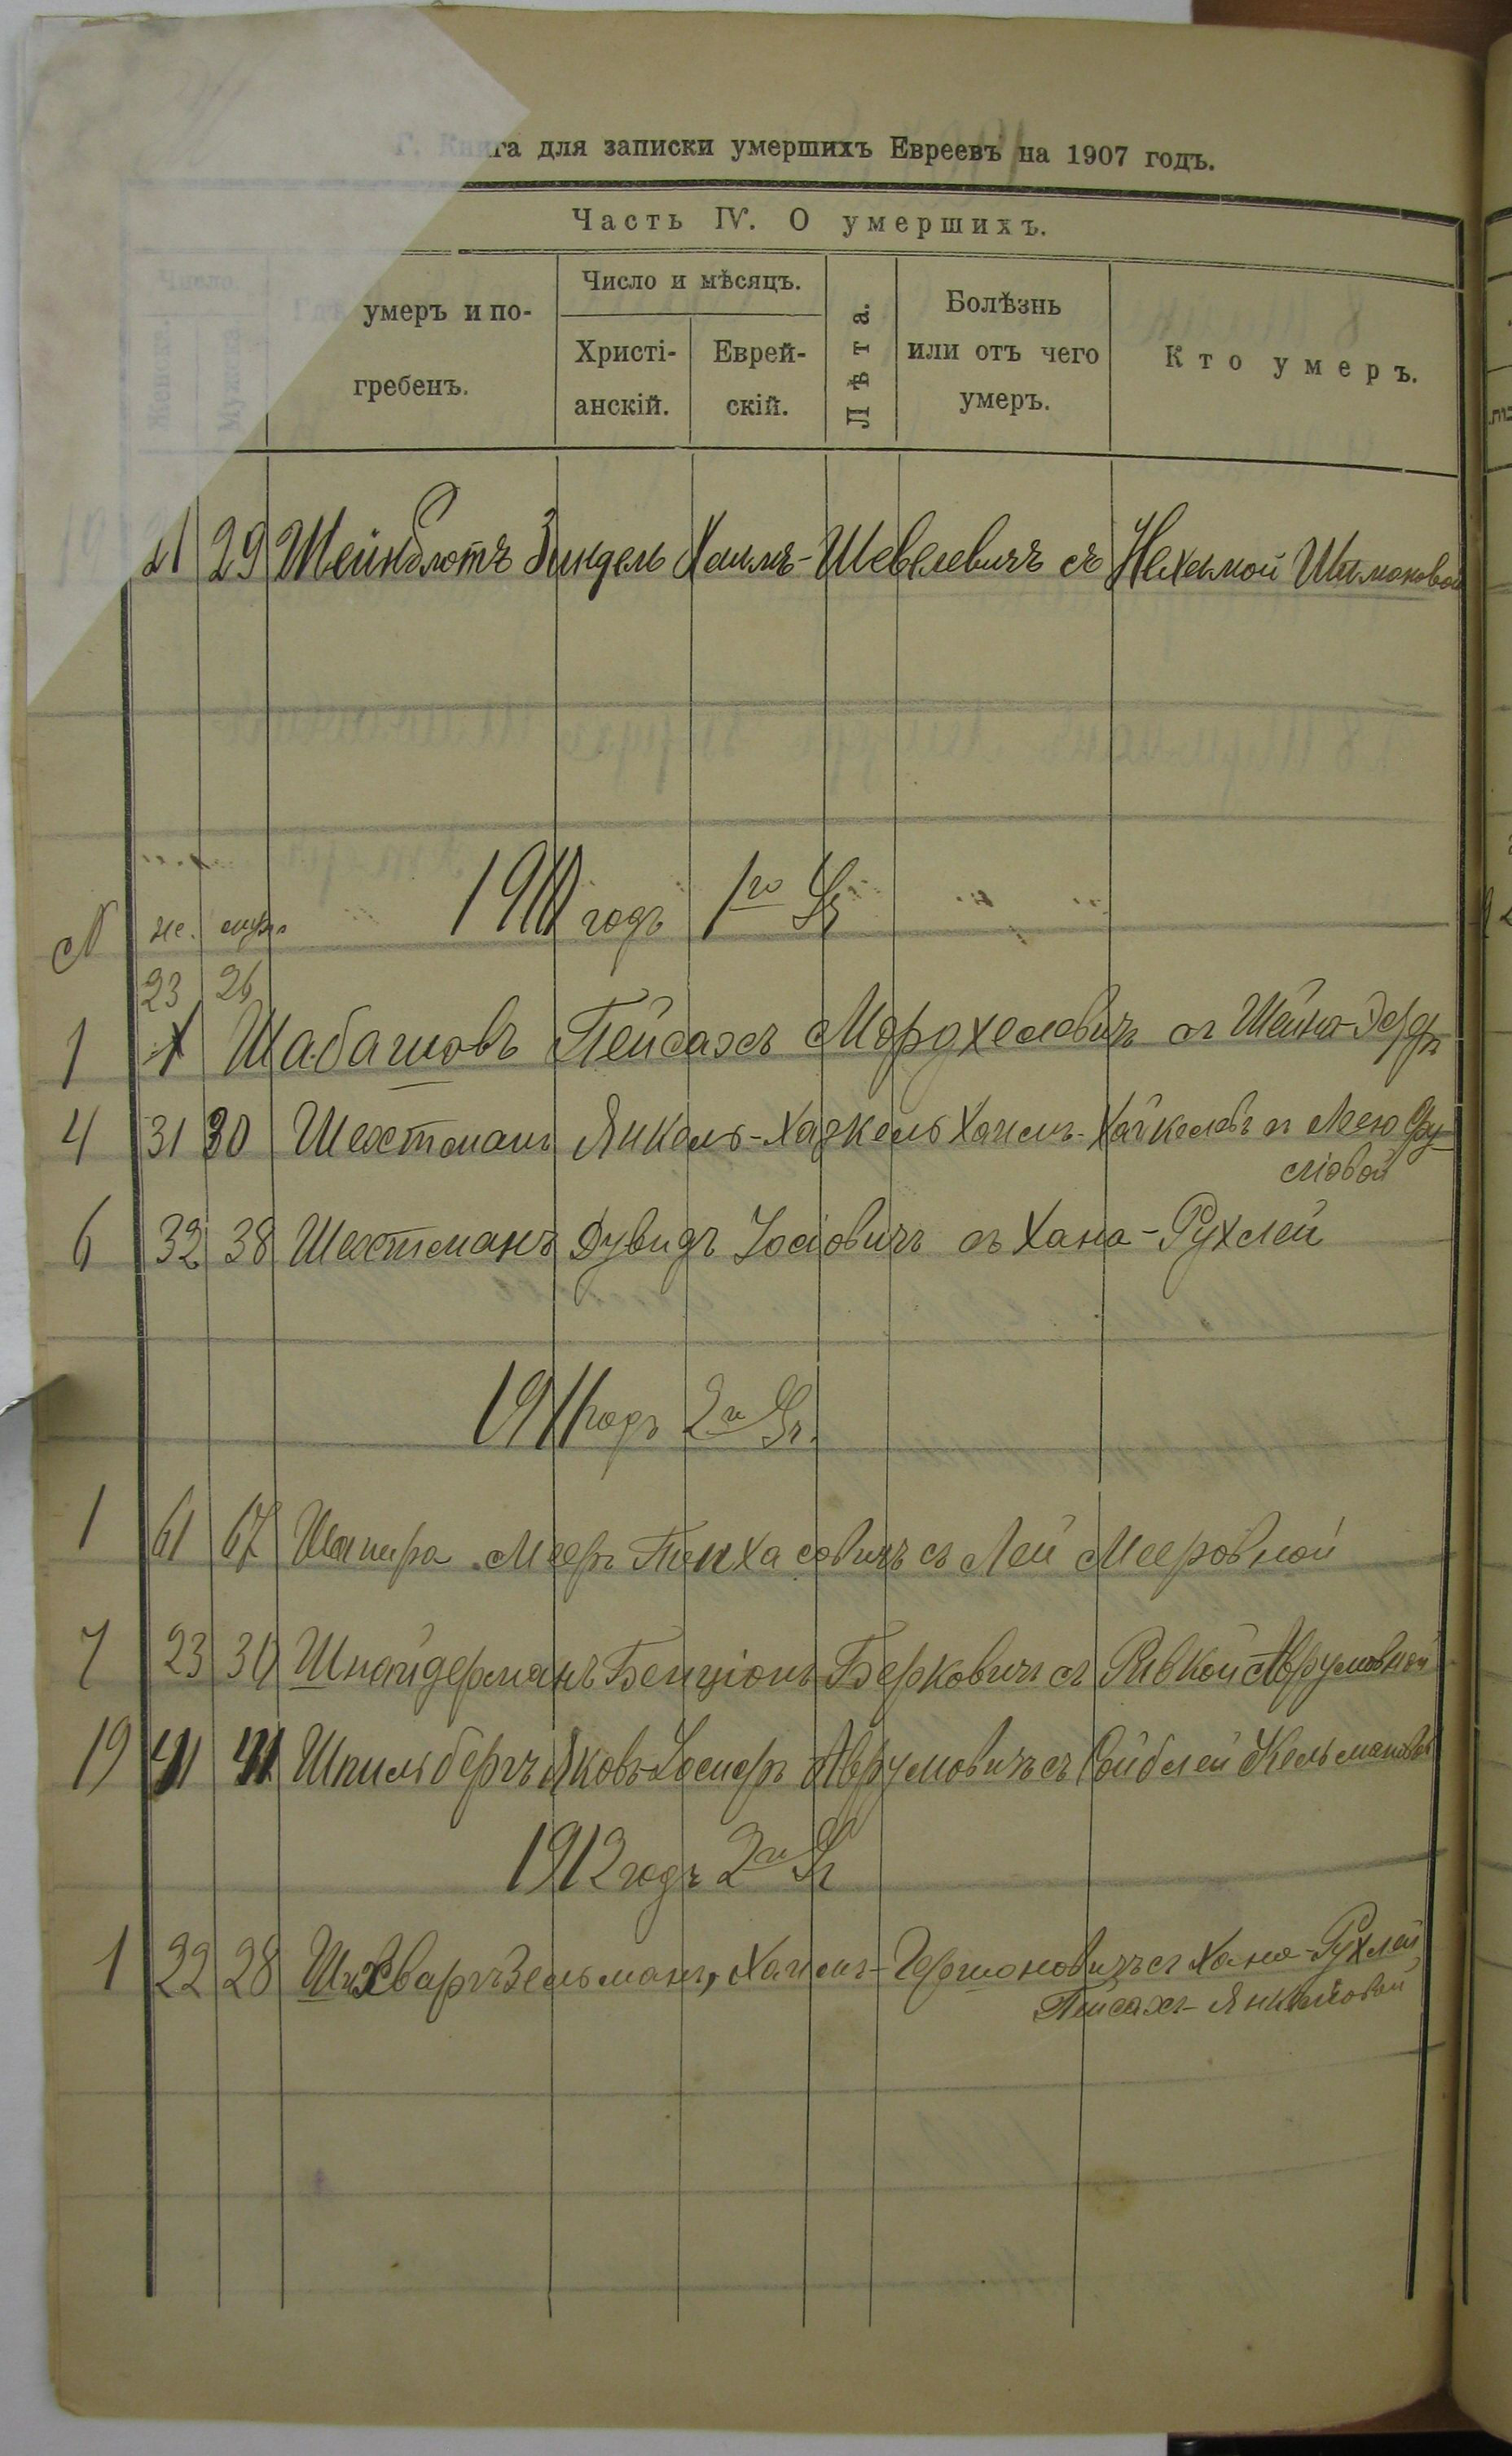 Г. Книга для записки умершихъ Евреевъ на 1907 годъ.
Часть IV. О умершихъ.
Число
умеръ и по-
гребенъ.
Число и мѣсяцъ.
Христі-
анскій.
Еврей-
скій.
Лѣта.
Болѣзнь
или отъ чего
умеръ.
Кто умеръ.
21 29 Шейнблотъ Зиндель Хаимъ-Шевелевичъ съ Нехамой Шимоновой
1911 годъ 1го
N же. муж.
23 26
1 Шабашовъ Пейсахъ Мордхелевичъ съ Шейна-
4 31 30 Шехтманъ Янкель-Хаскель Хаимъ-Хайкелевъ съ Леею
6 32 38 Шехтманъ Дувидъ Іосіовичъ съ Хана-Рухлей
1911 годъ 2й
1 61 67 Шапира Мееръ Пинхасовичъ съ Лей Мееровной
7 23 30 Шнайдерманъ Бенціонъ Берковичъ съ Ривкой Аврумовной
19 41 41 Шпильбергъ Яковъ-Іосифъ Аврумовичъ съ Сойблей Кельмановой
1912 годъ 2й
1 22 28 Шварцъ Зельманъ, Хаимъ-Гершоновичъ съ Хана-Рухлей
Пейсахъ-Янкелевой